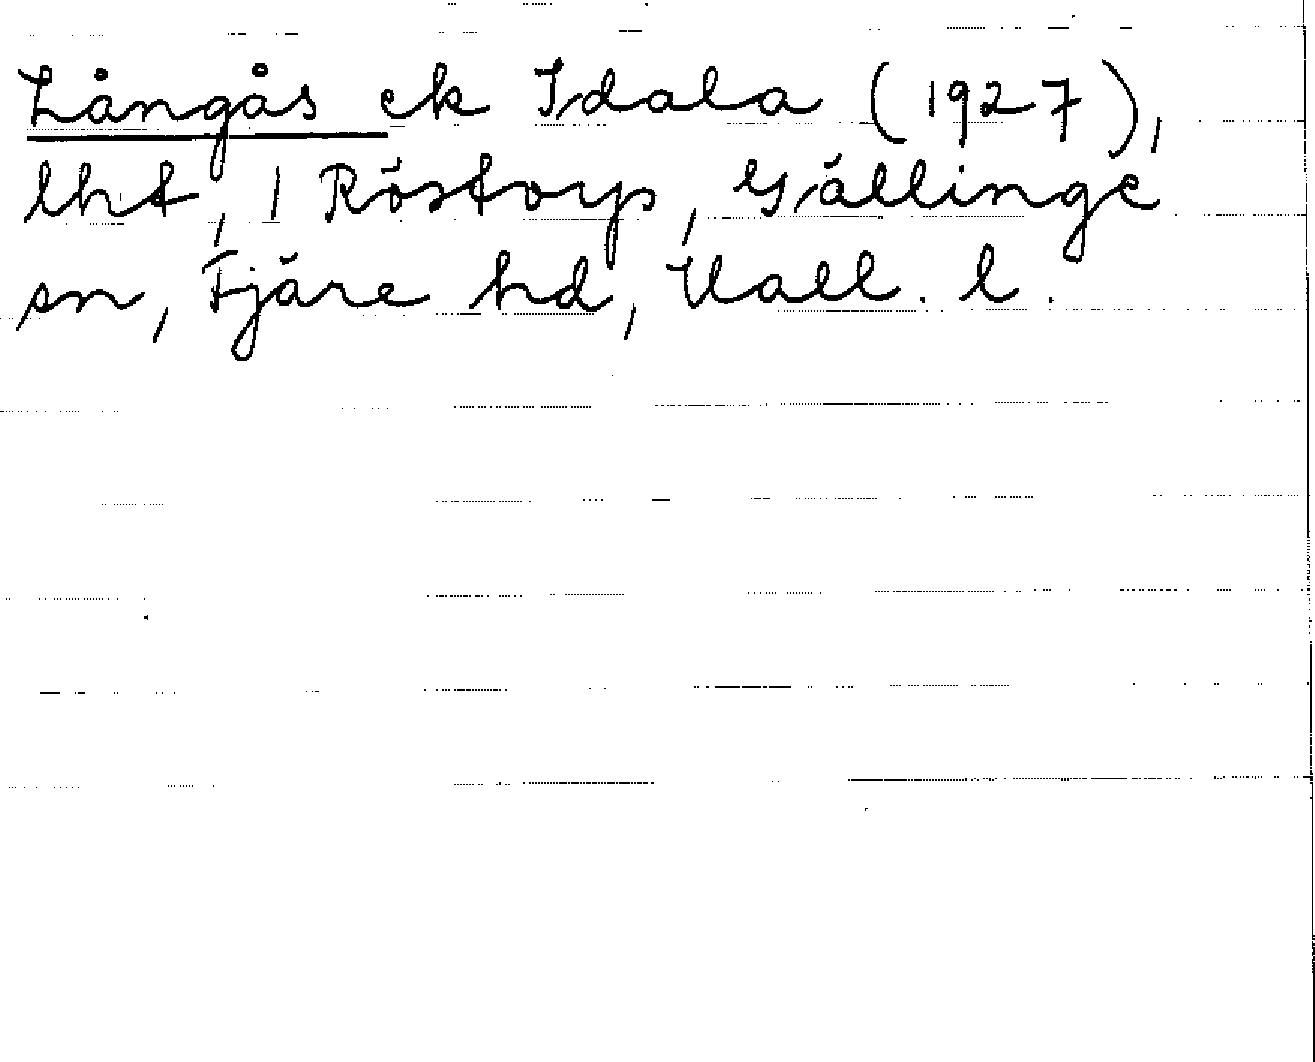 Långås ek Idala (1927),
lht, 1 Röstorp, Gällinge
sn, Fjäre hd, Hall. l.